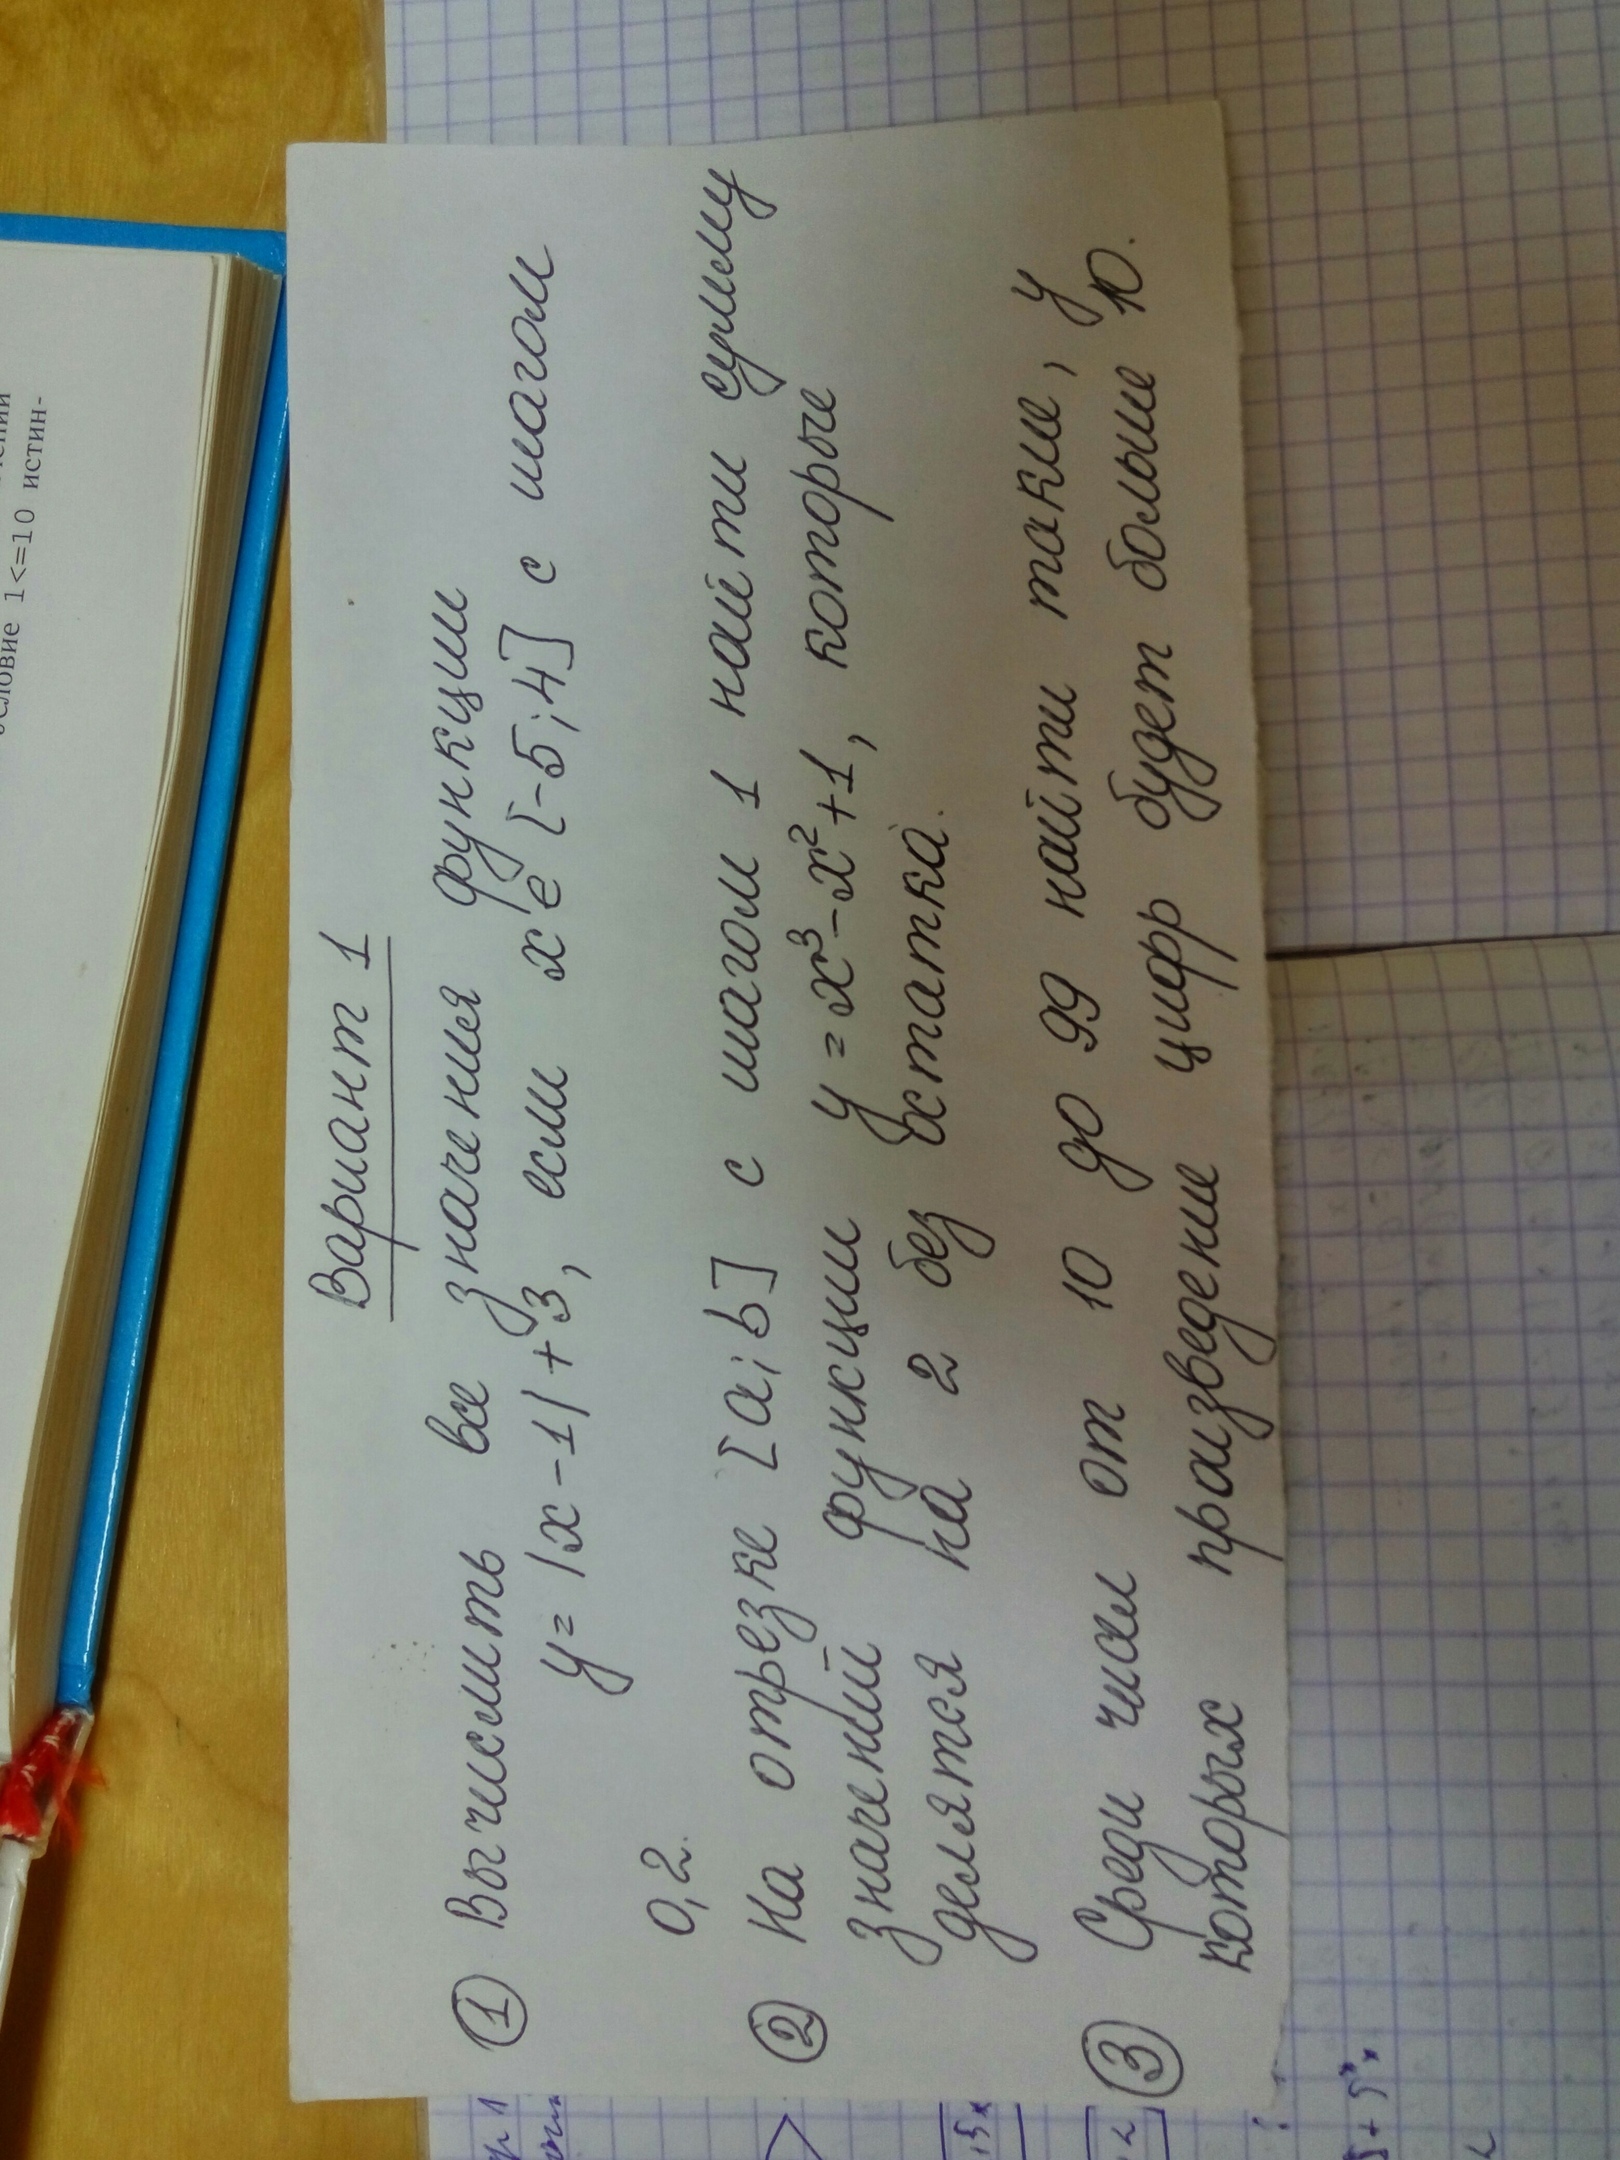 ении
условие 1<=10 истин-
Вариант 1
① Вычислить все значения функции
y = |x-1|+3, если x є [-5;4] с шагом
0,2.
② На отрезке [a;b] с шагом 1 найти сумму
значений функции y = x³-x²+1, которые
делятся на 2 без остатка.
③ Среди чисел от 10 до 99 найти такие, у
которых произведение цифр будет больше 10.